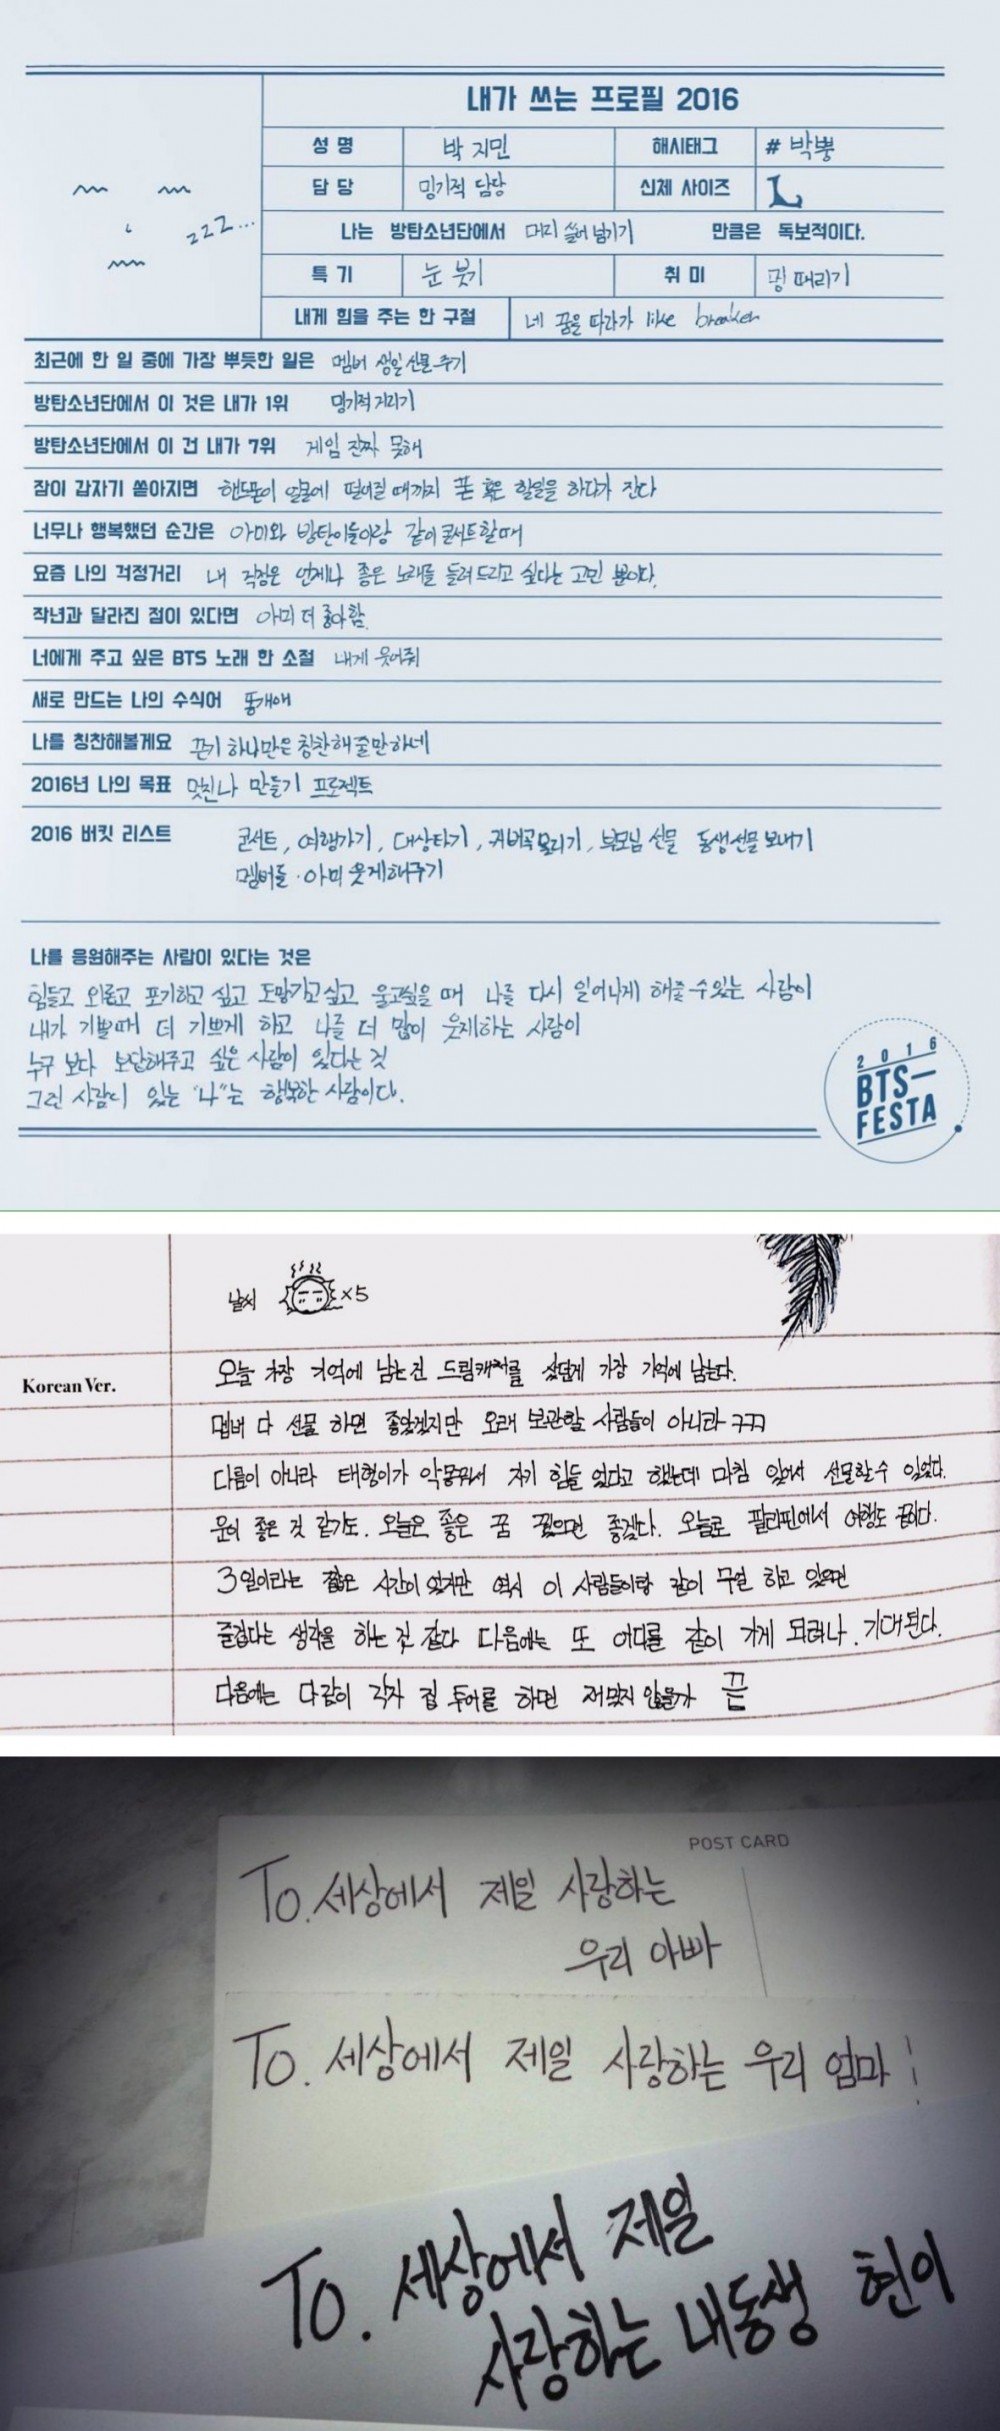 내가 쓰는 프로필 2016
성 명 박 지민 해시태그 # 박뿡
담 당 밍기적 담당 신체 사이즈 L
zzz...
나는 방탄소년단에서 머리 쓸어 넘기기 만큼은 독보적이다.
특 기 눈 붓기 취 미 멍 때리기
내게 힘을 주는 한 구절 네 꿈을 따라가 like breaker
최근에 한 일 중에 가장 뿌듯한 일은 멤버 생일 선물 주기
방탄소년단에서 이 것은 내가 1위 밍기적거리기
방탄소년단에서 이 건 내가 7위 게임 진짜 못해
잠이 갑자기 쏟아지면 핸드폰이 얼굴에 떨어질 때까지 폰 혹은 할일을 하다가 잔다
너무나 행복했던 순간은 아미와 방탄이들이랑 같이 콘서트할때
요즘 나의 걱정거리 내 걱정은 언제나 좋은 노래를 들려드리고 싶다는 고민 뿐이다.
작년과 달라진 점이 있다면 아미 더 좋아함.
너에게 주고 싶은 BTS 노래 한 소절 내게 웃어줘
새로 만드는 나의 수식어 똥개애
나를 칭찬해볼게요 끈기 하나만은 칭찬해줄만하네
2016년 나의 목표 멋진나 만들기 프로젝트
2016 버킷 리스트 콘서트, 여행가기, 대상타기, 커버곡 올리기, 부모님 선물 동생선물 보내기
멤버들·아미 웃게해주기
나를 응원해주는 사람이 있다는 것은
힘들고 외롭고 포기하고 싶고 도망가고싶고 울고싶을 때 나를 다시 일어나게 해줄 수있는 사람이
내가 기쁠때 더 기쁘게 하고 나를 더 많이 웃게하는 사람이
누구 보다 보답해주고 싶은 사람이 있다는 것
그런 사람이 있는 "나"는 행복한 사람이다.
2016
BTS-
FESTA
날씨 x5
Korean Ver.
오늘 가장 기억에 남는건 드림캐쳐를 샀던게 가장 기억에 남는다.
멤버 다 선물 하면 좋았겠지만 오래 보관할 사람들이 아니라 ㅋㅋㅋ
다름이 아니라 태형이가 악몽꿔서 자기 힘들 었다고 했는데 마침 있어서 선물할수 있었다.
운이 좋은 것 같기도. 오늘은 좋은 꿈 꿨으면 좋겠다. 오늘로 필리핀에서 여행도 끝이다.
3일이라는 짧은 시간이 었지만 역시 이 사람들이랑 같이 무얼 하고 있으면
즐겁다는 생각을 하는 것 같다 다음에는 또 어디를 같이 가게 되려나. 기대된다.
다음에는 다같이 각자 집 투어를 하면 재밌지 않을까 끝
POST CARD
To. 세상에서 제일 사랑하는
우리 아빠
To. 세상에서 제일 사랑하는 우리 엄마!
To. 세상에서 제일
사랑하는 내동생 현이